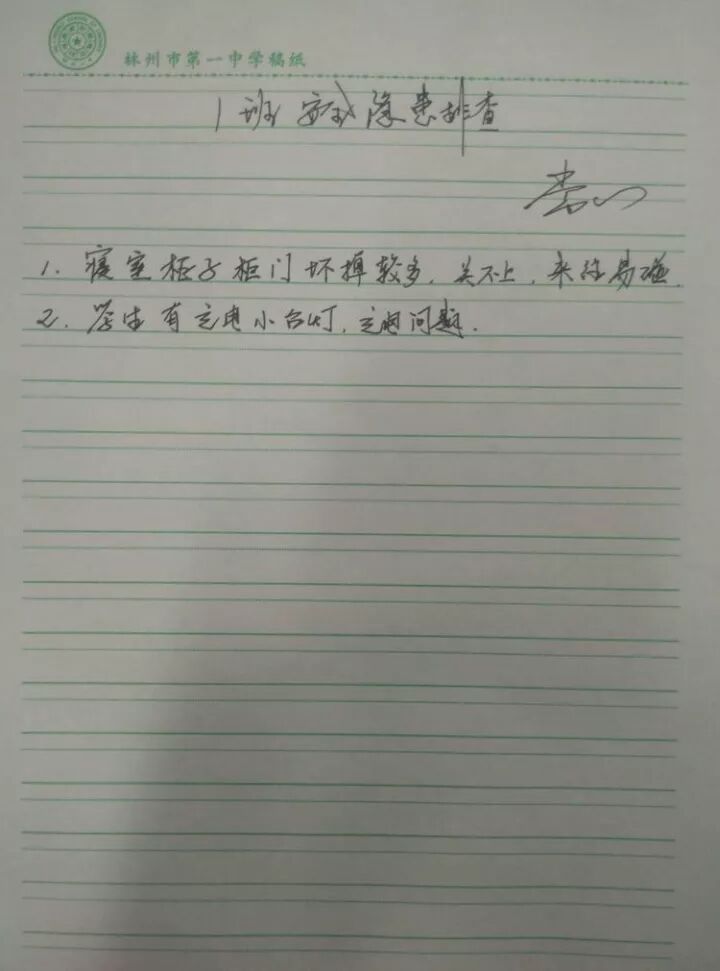 林州市第一中学稿纸
1班 安全隐患排查
1. 寝室柜子柜门坏掉较多,关不上,来往易碰.
2. 学生有充电小台灯,充电问题.